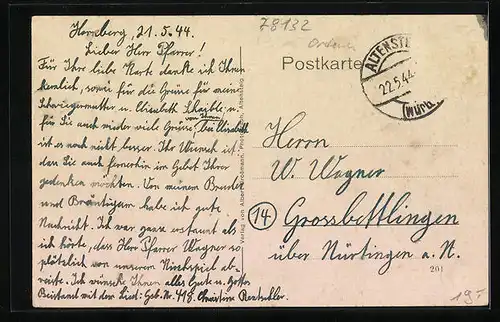 Hornberg, 21.5.44.
Lieber Herr Pfarrer!
Für Ihre liebe Karte danke ich Ihnen
herzlich, sowie für die Grüße für meine
Schwiegermutter u. Elisabeth Schaible u.
für Sie auch wieder viel Grüße von ihnen. Bei Elisabeth
ist es noch nicht besser. Ihr Wunsch ist
daß Sie auch fernerhin im Gebet Ihrer
gedenken möchten. Von meinem Bruder
und Bräutigam habe ich gute
Nachricht. Ich war ganz erstaunt als
ich hörte, dass Herr Pfarrer Wagner so
plötzlich von unserem Kirchspiel ab-
reiste. Ich wünsche Ihnen alles Gute u. Gottes
Beistand mit dem Lied: Gsb. Nr. 418. Christine
78132
Postkarte
ALTENSTEIG
22.5.44
(Württ
Herrn
W. Wagner
14 Grossbettlingen
über Nürtingen a. N.
201
19.-